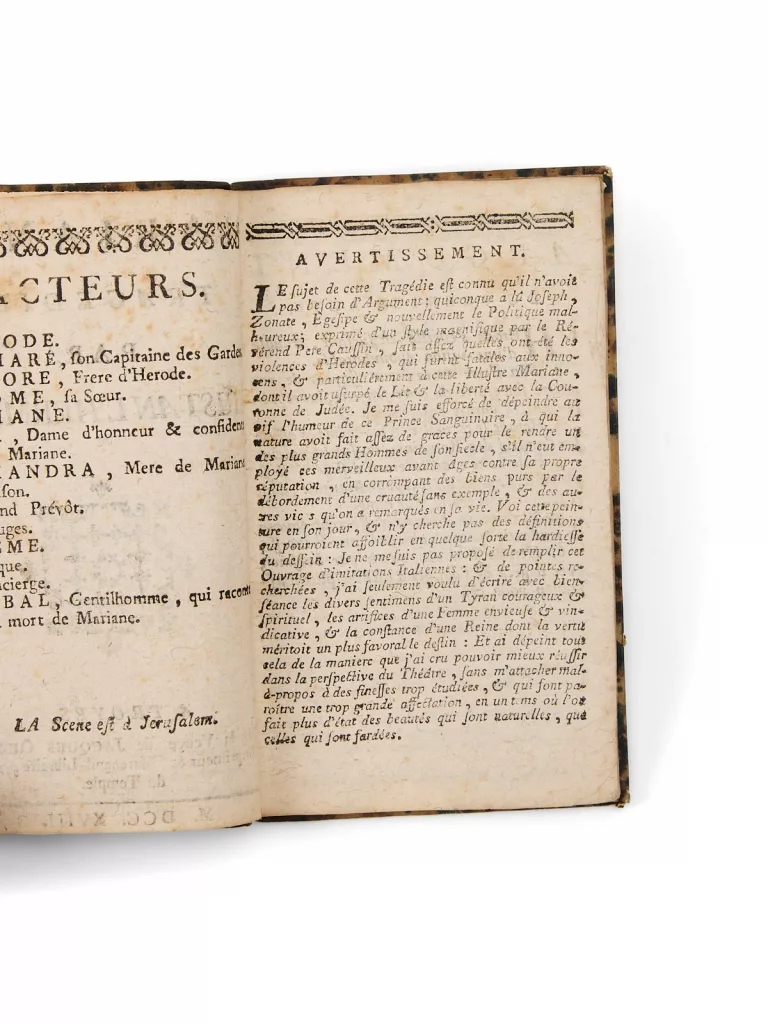 ACTEURS.
ODE.
ARÉ, son Capitaine des Gardes
ORE, Frere d'Herode.
ME, sa Sœur.
IANE.
, Dame d'honneur & confidente
Mariane.
ANDRA, Mere de Mariane
son.
nd Prévôt.
uges.
ÊME.
que.
cierge.
BAL, Gentilhomme, qui raconte
mort de Mariane.
LA Scene est à Jerusalem.
AVERTISSEMENT.
LE sujet de cette Tragédie est connu qu'il n'avoit
pas besoin d'Argument: quiconque a lû Joseph,
Zonate, Egesipe & nouvellement le Politique mal-
heureux; exprimé d'un style magnifique par le Ré-
vérend Pere Caussin, sait assez quelles ont été les
violences d'Herodes, qui furent fatales aux inno-
cens, & particuliérement à cette Illustre Mariane,
dont il avoit usurpé le Lit & la liberté avec la Cou-
ronne de Judée. Je me suis efforcé de dépeindre au
vif l'humeur de ce Prince Sanguinaire, à qui la
nature avoit fait assez de graces pour le rendre un
des plus grands Hommes de son siecle, s'il n'eut em-
ployé ces merveilleux avant âges contre sa propre
réputation, en corrompant des biens purs par le
débordement d'une cruauté sans exemple, & des au-
tres vic s qu'on a remarqués en sa vie. Voi cette pein-
ture en son jour, & n'y cherche pas des définitions
qui pourroient affoiblir en quelque sorte la hardiesse
du dessein: Je ne me suis pas proposé de remplir cet
Ouvrage d'imitations Italiennes: & de pointes re-
cherchées, j'ai seulement voulu d'écrire avec bien-
séance les divers sentimens d'un Tyran courageux &
spirituel, les artifices d'une Femme envieuse & vin-
dicative, & la constance d'une Reine dont la vertu
méritoit un plus favoral le destin: Et ai dépeint tout
cela de la maniere que j'ai cru pouvoir mieux réussir
dans la perspective du Théâtre, sans m'attacher mal-
à-propos à des finesses trop étudiées, & qui font pa-
roître une trop grande affectation, en un tems où l'on
fait plus d'état des beautés qui sont naturelles, que
celles qui sont fardées.